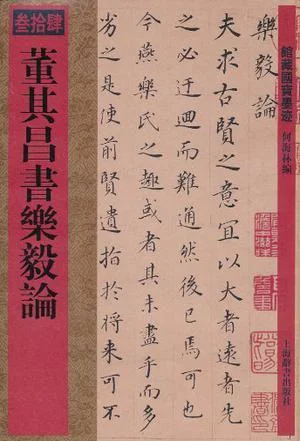 館藏國寶墨迹
何海林編
上海辭書出版社
樂毅論
夫求古賢之意宜以大者遠者先
之必迂迴而難通然後已焉可也
今燕樂氏之趣或者其未盡乎而多
劣之是使前賢遺指於將來可不
叁拾肆
董其昌書樂毅論